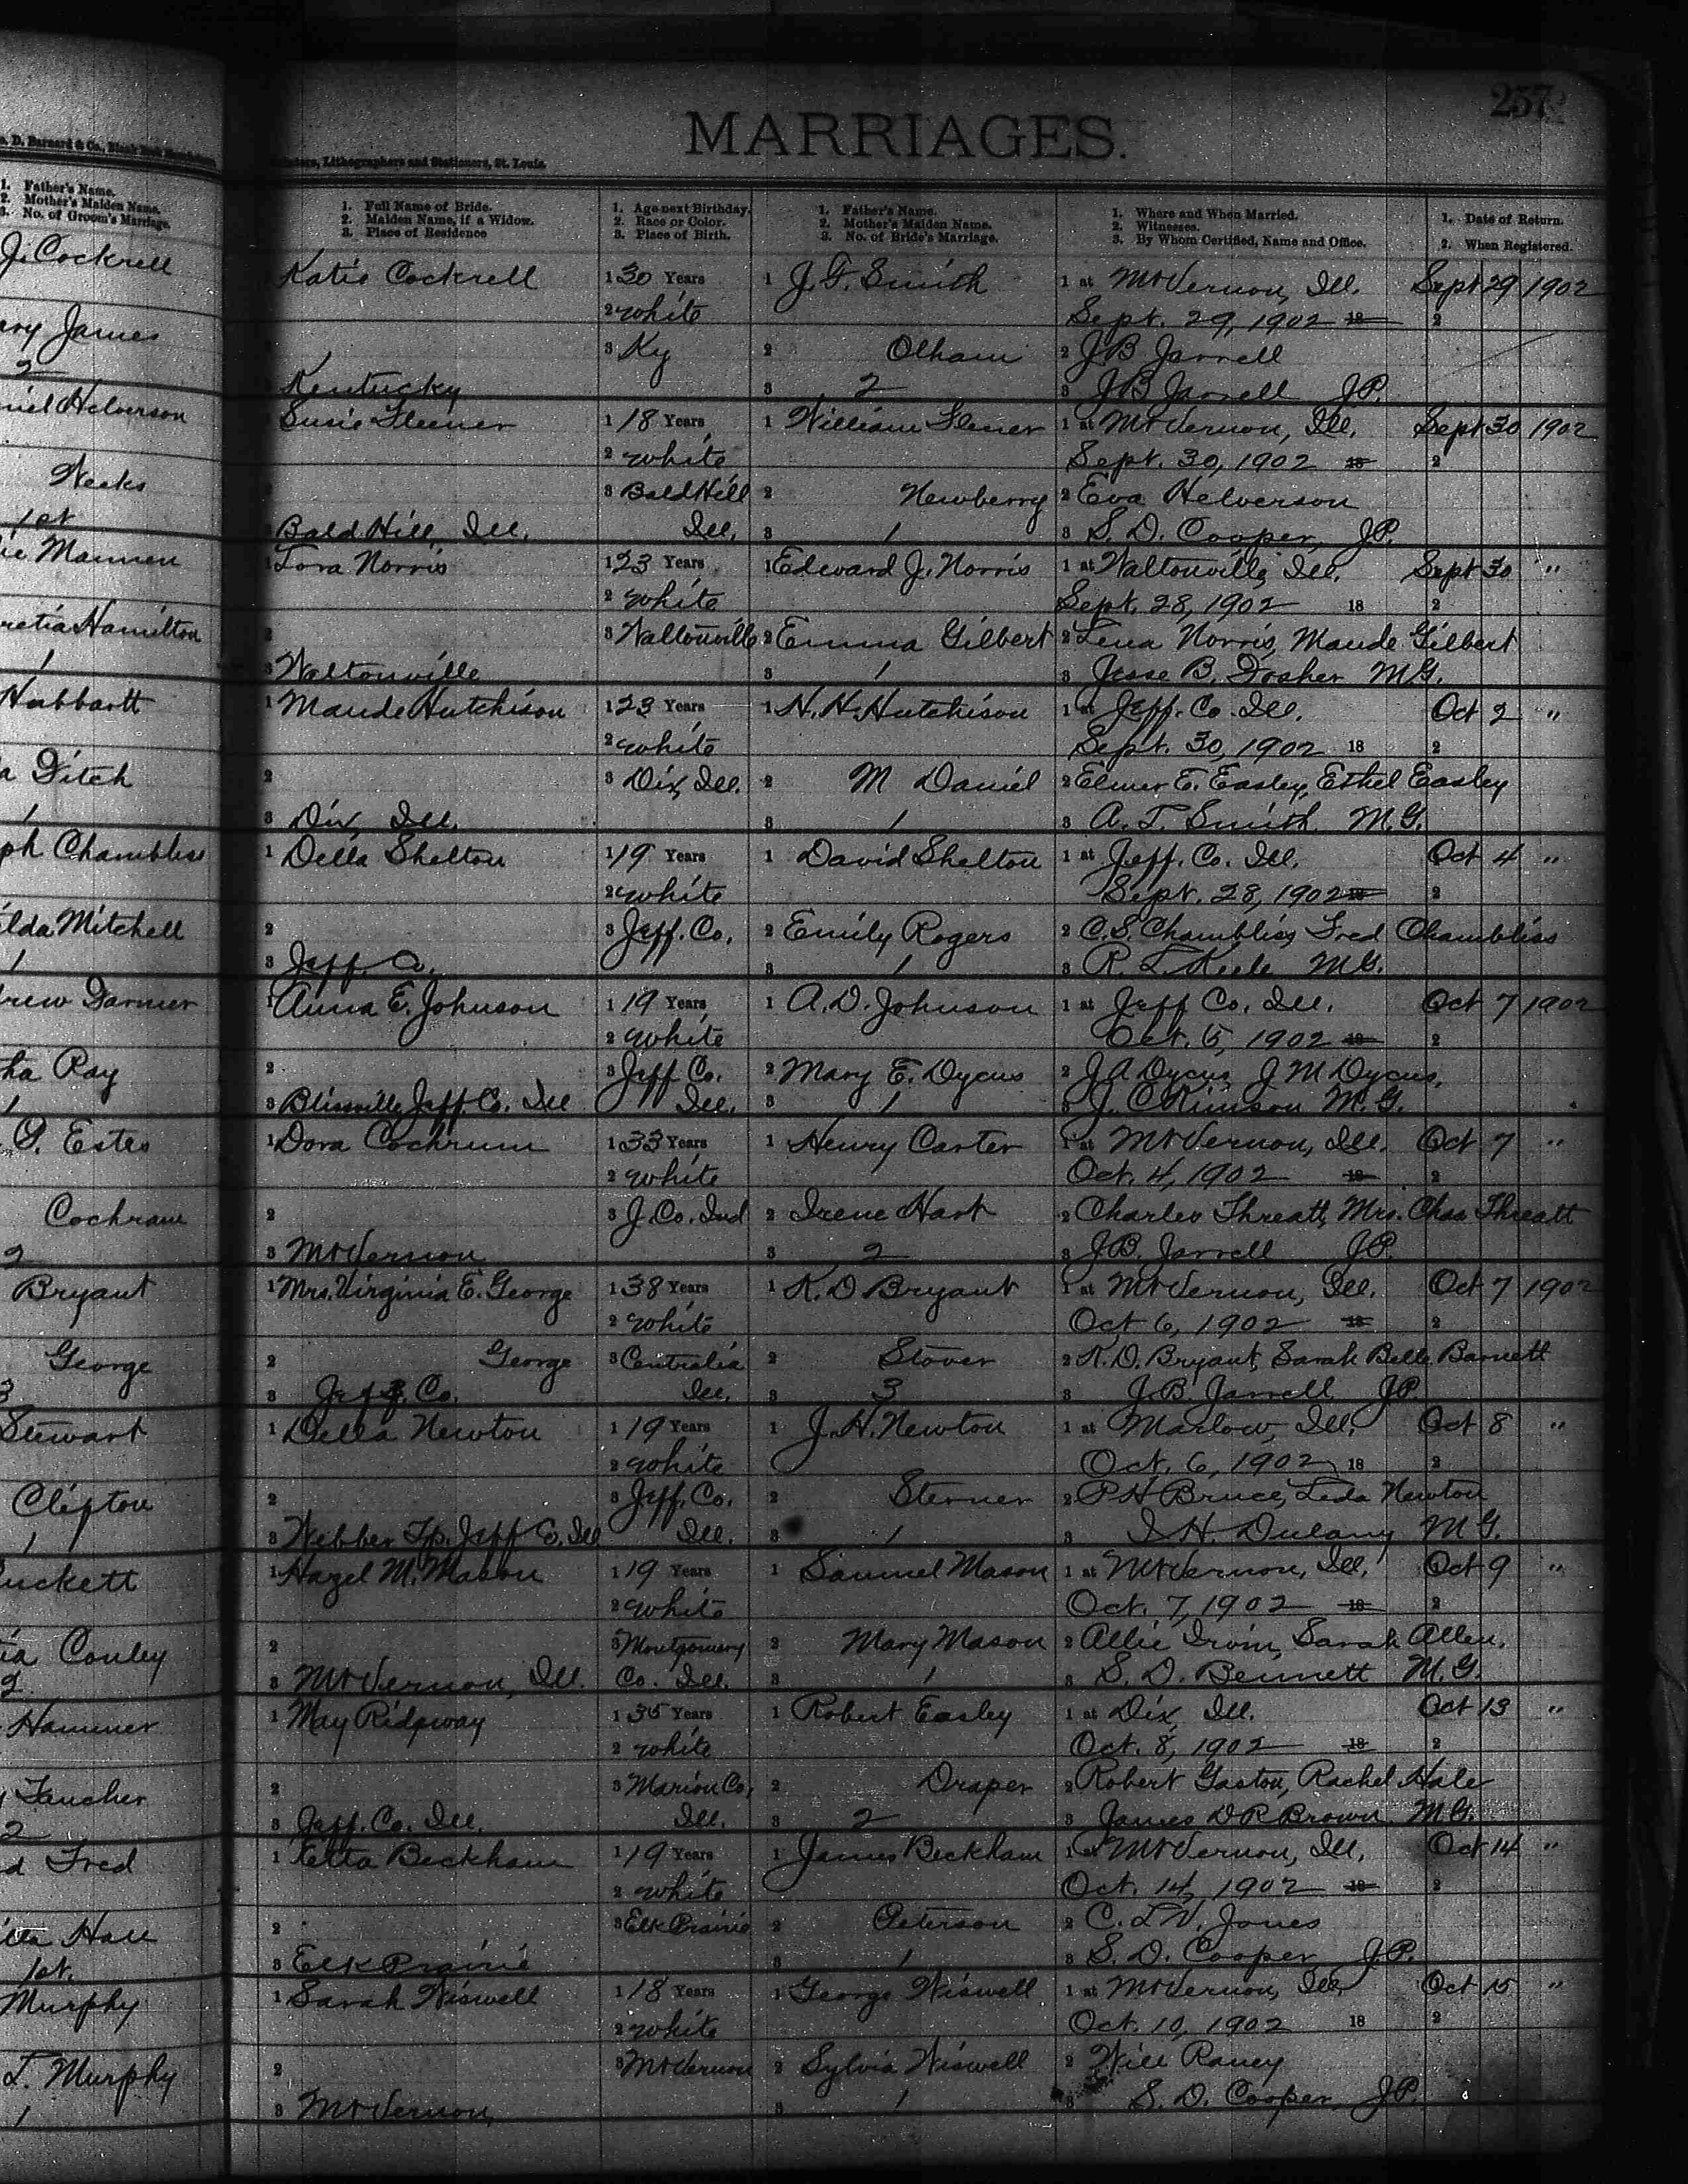 257
MARRIAGES.
D. Barnard & Co., Blank Book
Lithographers and Stationers, St. Louis.
1. Father's Name.
2. Mother's Maiden Name.
3. No. of Groom's Marriage.
1. Full Name of Bride.
2. Maiden Name, if a Widow.
3. Place of Residence
1. Age next Birthday.
2. Race or Color.
3. Place of Birth.
1. Father's Name.
2. Mother's Maiden Name.
3. No. of Bride's Marriage.
1. Where and When Married.
2. Witnesses.
3. By Whom Certified, Name and Office.
1. Date of Return.
2. When Registered.
J. Cockrell
1 Katie Cockrell 1 30 Years 1 J. F. Smith 1 at Mt Vernon, Ill. Sept 29 1902
2 white Sept. 29, 1902 18 2
James
3 Ky 2 Olham 2 J B Jarrell
2
Kentucky 3 2 3 J B Jarrell J.P.
Helverson
Susie Fleener 1 18 Years 1 William Flener 1 at Mt Vernon, Ill. Sept 30 1902
2 white Sept. 30, 1902 18 2
Weeks
3 Bald Hill 2 Newberry 2 Eva Helverson
1st
Bald Hill, Ill. Ill. 3 1 3 S. D. Cooper, J.P.
Mannen
1 Tora Norris 1 23 Years 1 Edward J. Norris 1 at Waltonville, Ill. Sept 30 "
2 white Sept. 28, 1902 18 2
Hamilton
2 3 Waltonville 2 Emma Gilbert 2 Lena Norris, Maude Gilbert
1
3 Waltonville 3 1 3 Jesse B. Dosher M.G.
Hubbartt
1 Maude Hutchison 1 23 Years 1 N. H. Hutchison 1 at Jeff. Co. Ill. Oct 2 "
2 white Sept. 30, 1902 18 2
Fitch
2 3 Dix, Ill. 2 M Daniel 2 Elmer E. Easley, Ethel Easley
1
3 Dix, Ill. 3 1 3 A. T. Smith M.G.
Chambliss
1 Della Shelton 1 19 Years 1 David Shelton 1 at Jeff. Co. Ill. Oct 4 "
2 white Sept. 28, 1902 18 2
Mitchell
2 3 Jeff. Co. 2 Emily Rogers 2 C. S. Chambliss, Fred Chambliss
1
3 Jeff. Co. 3 1 3 R. L. Keele M.G.
1 Anna E. Johnson 1 19 Years 1 A. D. Johnson 1 at Jeff Co. Ill. Oct 7 1902
2 white Oct. 5, 1902 18 2
Ray
2 3 Jeff Co. 2 Mary E. Dycus 2 J A Dycus, J M Dycus,
1
3 Blissville Jeff. Co. Ill Ill. 3 1 3 J. C Kinison M.G.
Estes
1 Dora Cochrum 1 33 Years 1 Henry Carter 1 at Mt Vernon, Ill. Oct 7 "
2 white Oct. 4, 1902 18 2
Cochrane
2 3 J. Co. Ind 2 Irene Hart 2 Charles Threatt, Mrs. Chas Threatt
2
3 Mt Vernon 3 2 3 J. B. Jarrell J.P.
Bryant
1 Mrs. Virginia E. George 1 38 Years 1 K. D Bryant 1 at Mt Vernon, Ill. Oct 7 1902
2 white Oct 6, 1902 18 2
George
2 George 3 Centralia 2 Stover 2 K. D. Bryant, Sarah Belle Barnett
3
3 Jeff. Co. Ill. 3 3 3 J. B. Jarrell J.P.
Stewart
1 Della Newton 1 19 Years 1 J. H. Newton 1 at Marlow, Ill. Oct 8 "
2 white Oct. 6, 1902 18 2
Clifton
2 3 Jeff. Co. 2 Sterner 2 P H Bruce, Leda Newton
1
3 Webber Tp. Jeff Co. Ill Ill. 3 1 3 I. H. Dulany M.G.
1 Hazel M. Mason 1 19 Years 1 Samuel Mason 1 at Mt Vernon, Ill. Oct 9 "
2 white Oct. 7, 1902 18 2
Conley
2 3 Montgomery 2 Mary Mason 2 Allie Irvin, Sarah Allen.
2
3 Mt Vernon, Ill. Co. Ill. 3 1 3 S. D. Bennett M.G.
Hammer
1 May Ridgway 1 35 Years 1 Robert Easley 1 at Dix, Ill. Oct 13 "
2 white Oct. 8, 1902 18 2
Faucher
2 3 Marion Co, 2 Draper 2 Robert Gaston, Rachel Hale
2
3 Jeff. Co. Ill. Ill. 3 2 3 James D R Brown M.G.
Fred
1 Tetta Beckham 1 19 Years 1 James Beckham 1 at Mt Vernon, Ill, Oct 14 "
2 white Oct. 14, 1902 18 2
Hall
2 3 Elk Prairie 2 Peterson 2 C. L. V. Jones
1st.
3 Elk Prairie 3 1 3 S. D. Cooper J.P.
Murphy
1 Sarah Wiswell 1 18 Years 1 George Wiswell 1 at Mt Vernon, Ill, Oct 15 "
2 white Oct. 10, 1902 18 2
T. Murphy
2 3 Mt Vernon 2 Sylvia Wiswell 2 Will Raney
1
3 Mt Vernon, 3 1 3 S. D. Cooper, J.P.